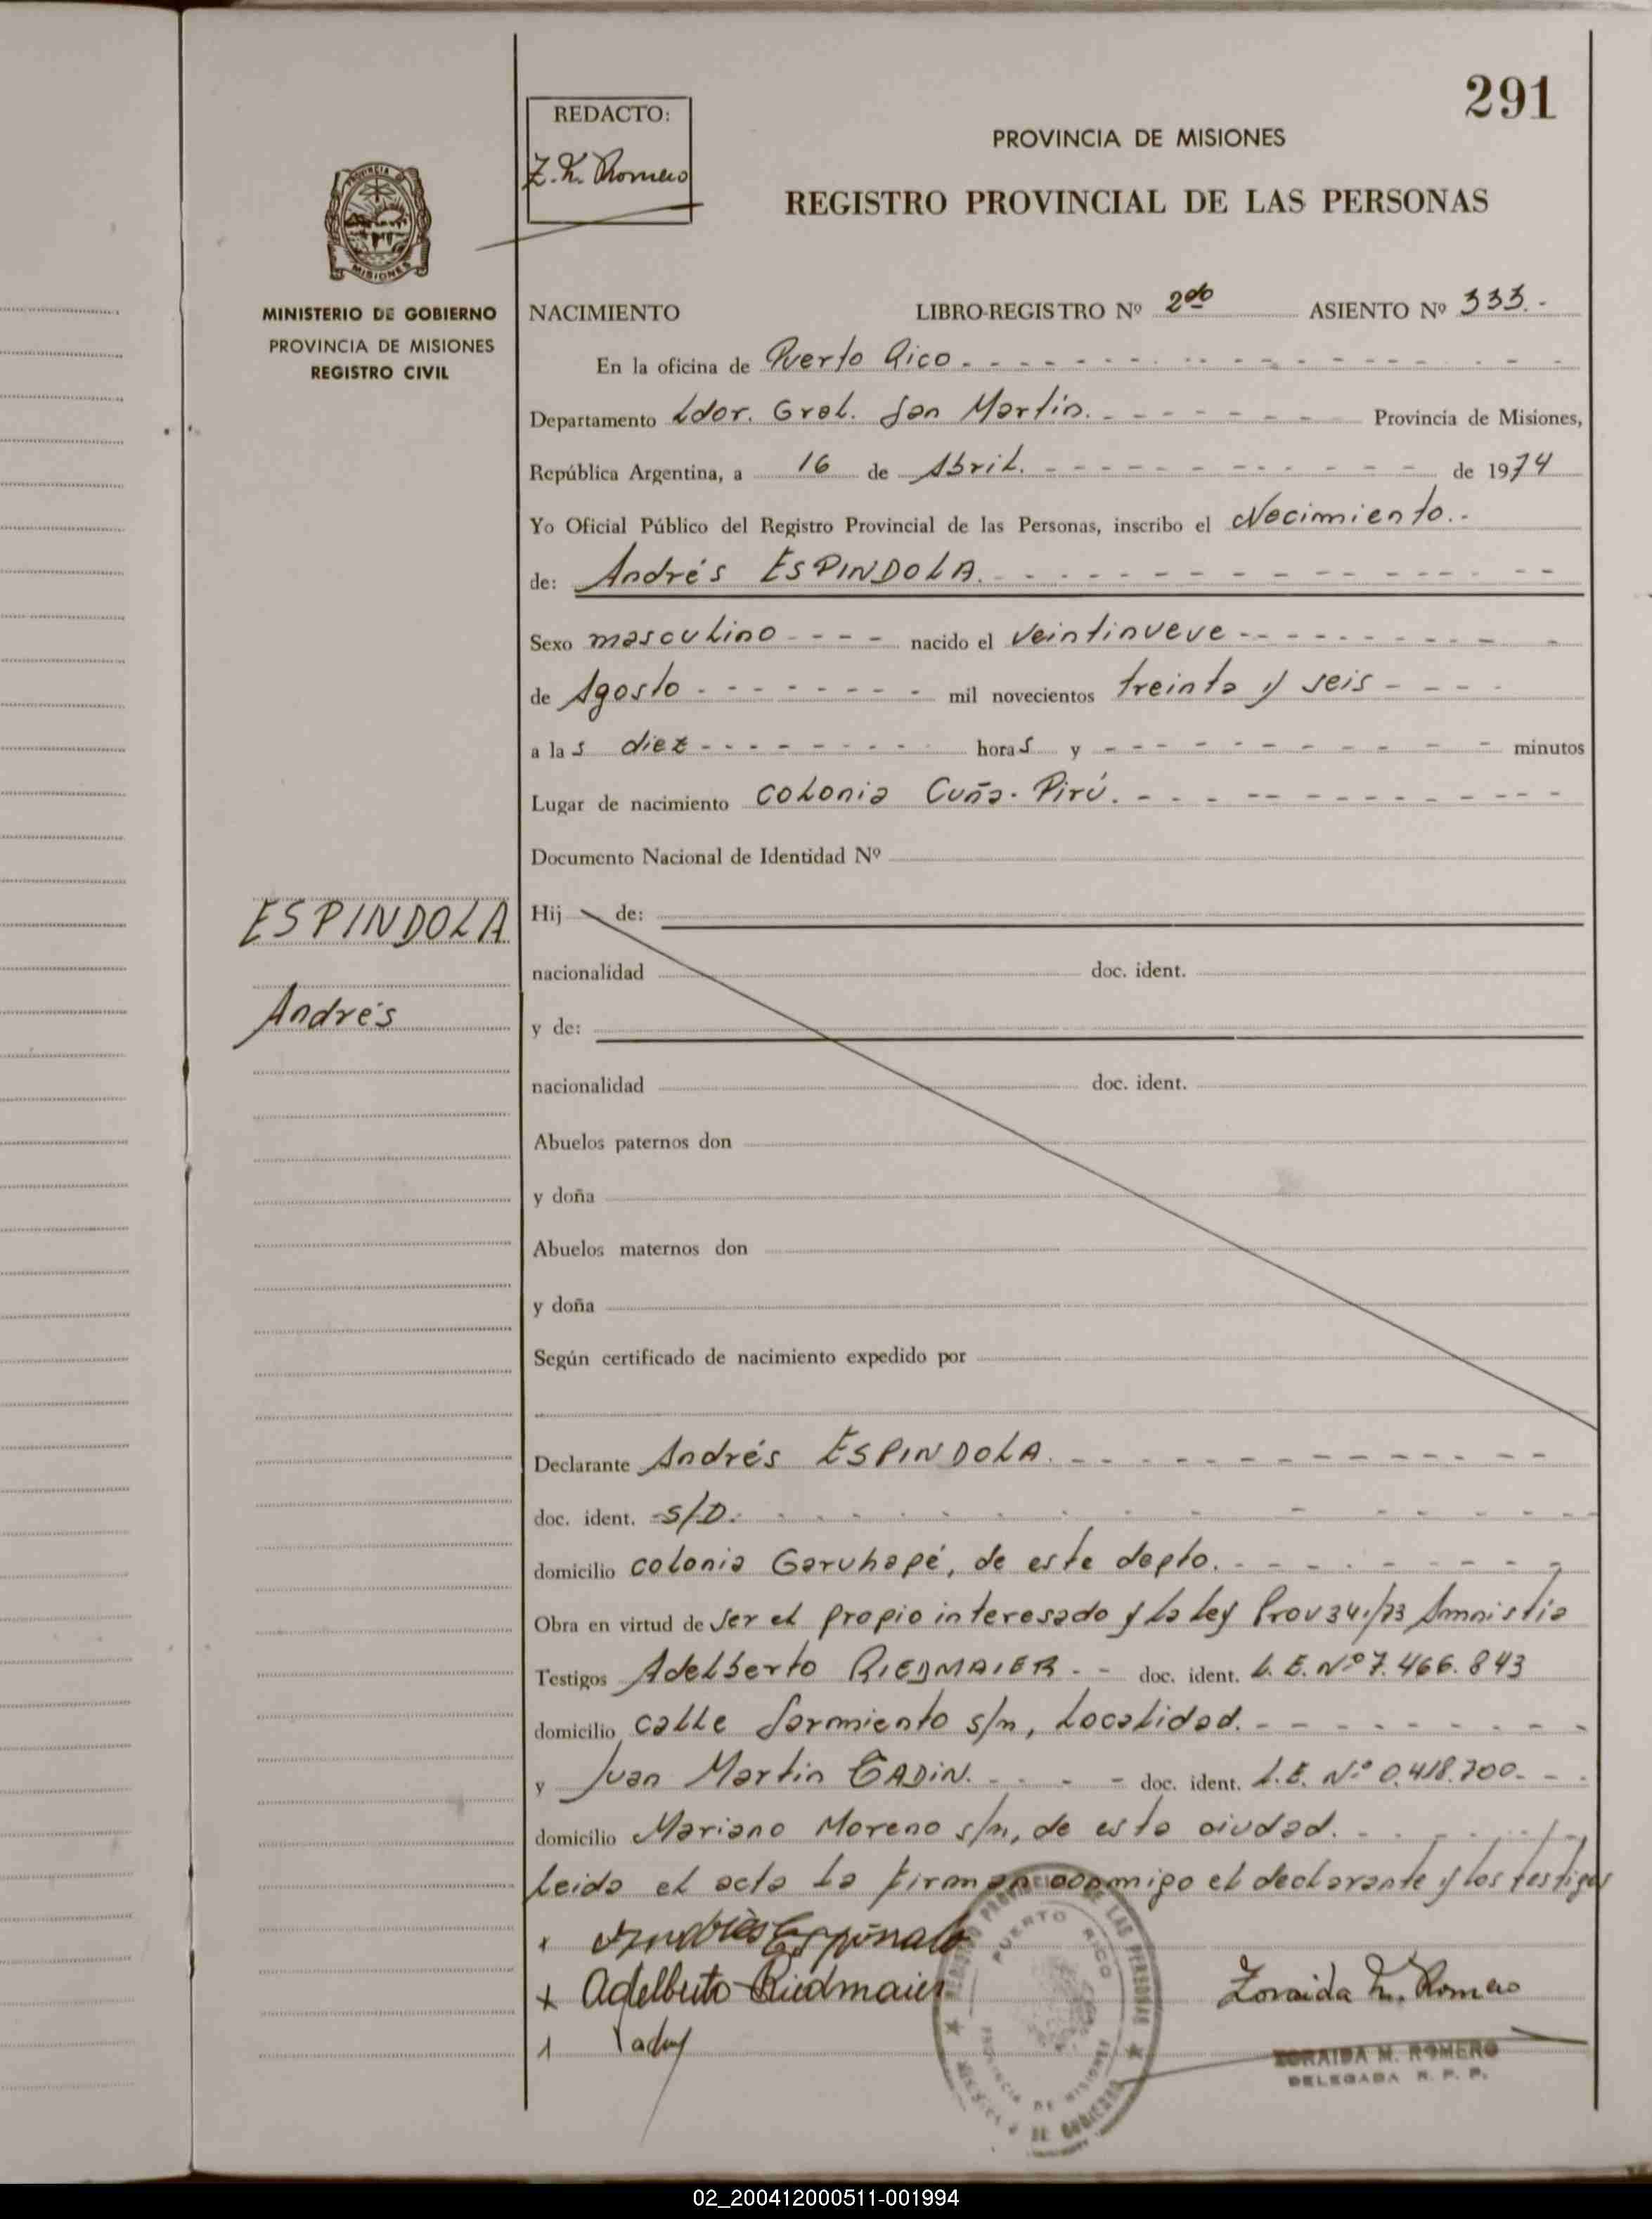 291
REDACTO:
Z. M. Romero
PROVINCIA DE MISIONES
REGISTRO PROVINCIAL DE LAS PERSONAS
PROVINCIA DE
MISIONES
MINISTERIO DE GOBIERNO
PROVINCIA DE MISIONES
REGISTRO CIVIL
NACIMIENTO LIBRO-REGISTRO Nº 2do ASIENTO Nº 333.-
En la oficina de Puerto Rico.
Departamento Ldor. Gral. San Martín. Provincia de Misiones,
República Argentina, a 16 de Abril. de 1974
Yo Oficial Público del Registro Provincial de las Personas, inscribo el Nacimiento.-
de: Andrés ESPINDOLA.
Sexo masculino nacido el veintinueve
de Agosto mil novecientos treinta y seis
a las diez horas y minutos
Lugar de nacimiento colonia Cuña-Pirú.
Documento Nacional de Identidad Nº
ESPINDOLA
Andrés
Hij de:
nacionalidad doc. ident.
y de:
nacionalidad doc. ident.
Abuelos paternos don
y doña
Abuelos maternos don
y doña
Según certificado de nacimiento expedido por
Declarante Andrés ESPINDOLA.
doc. ident. S/D.
domicilio colonia Garuhapé, de este depto.
Obra en virtud de ser el propio interesado y la ley Prov 341/73 Amnistia
Testigos Adelberto RIEDMAIER. doc. ident. L.E. Nº 7.466.843
domicilio calle Sarmiento s/n, Localidad.
y Juan Martin doc. ident. L.E. Nº 0.418.700.
domicilio Mariano Moreno s/n, de esta ciudad.
leida el acta la firman conmigo el declarante y los testigos
Andrés Espinola
Adelberto Riedmaier
REGISTRO PROVINCIAL DE LAS PERSONAS
PUERTO RICO
PROVINCIA DE MISIONES
MINISTERIO DE GOBIERNO
Zoraida M. Romero
ZORAIDA M. ROMERO
DELEGADA R. P. P.
02_200412000511-001994